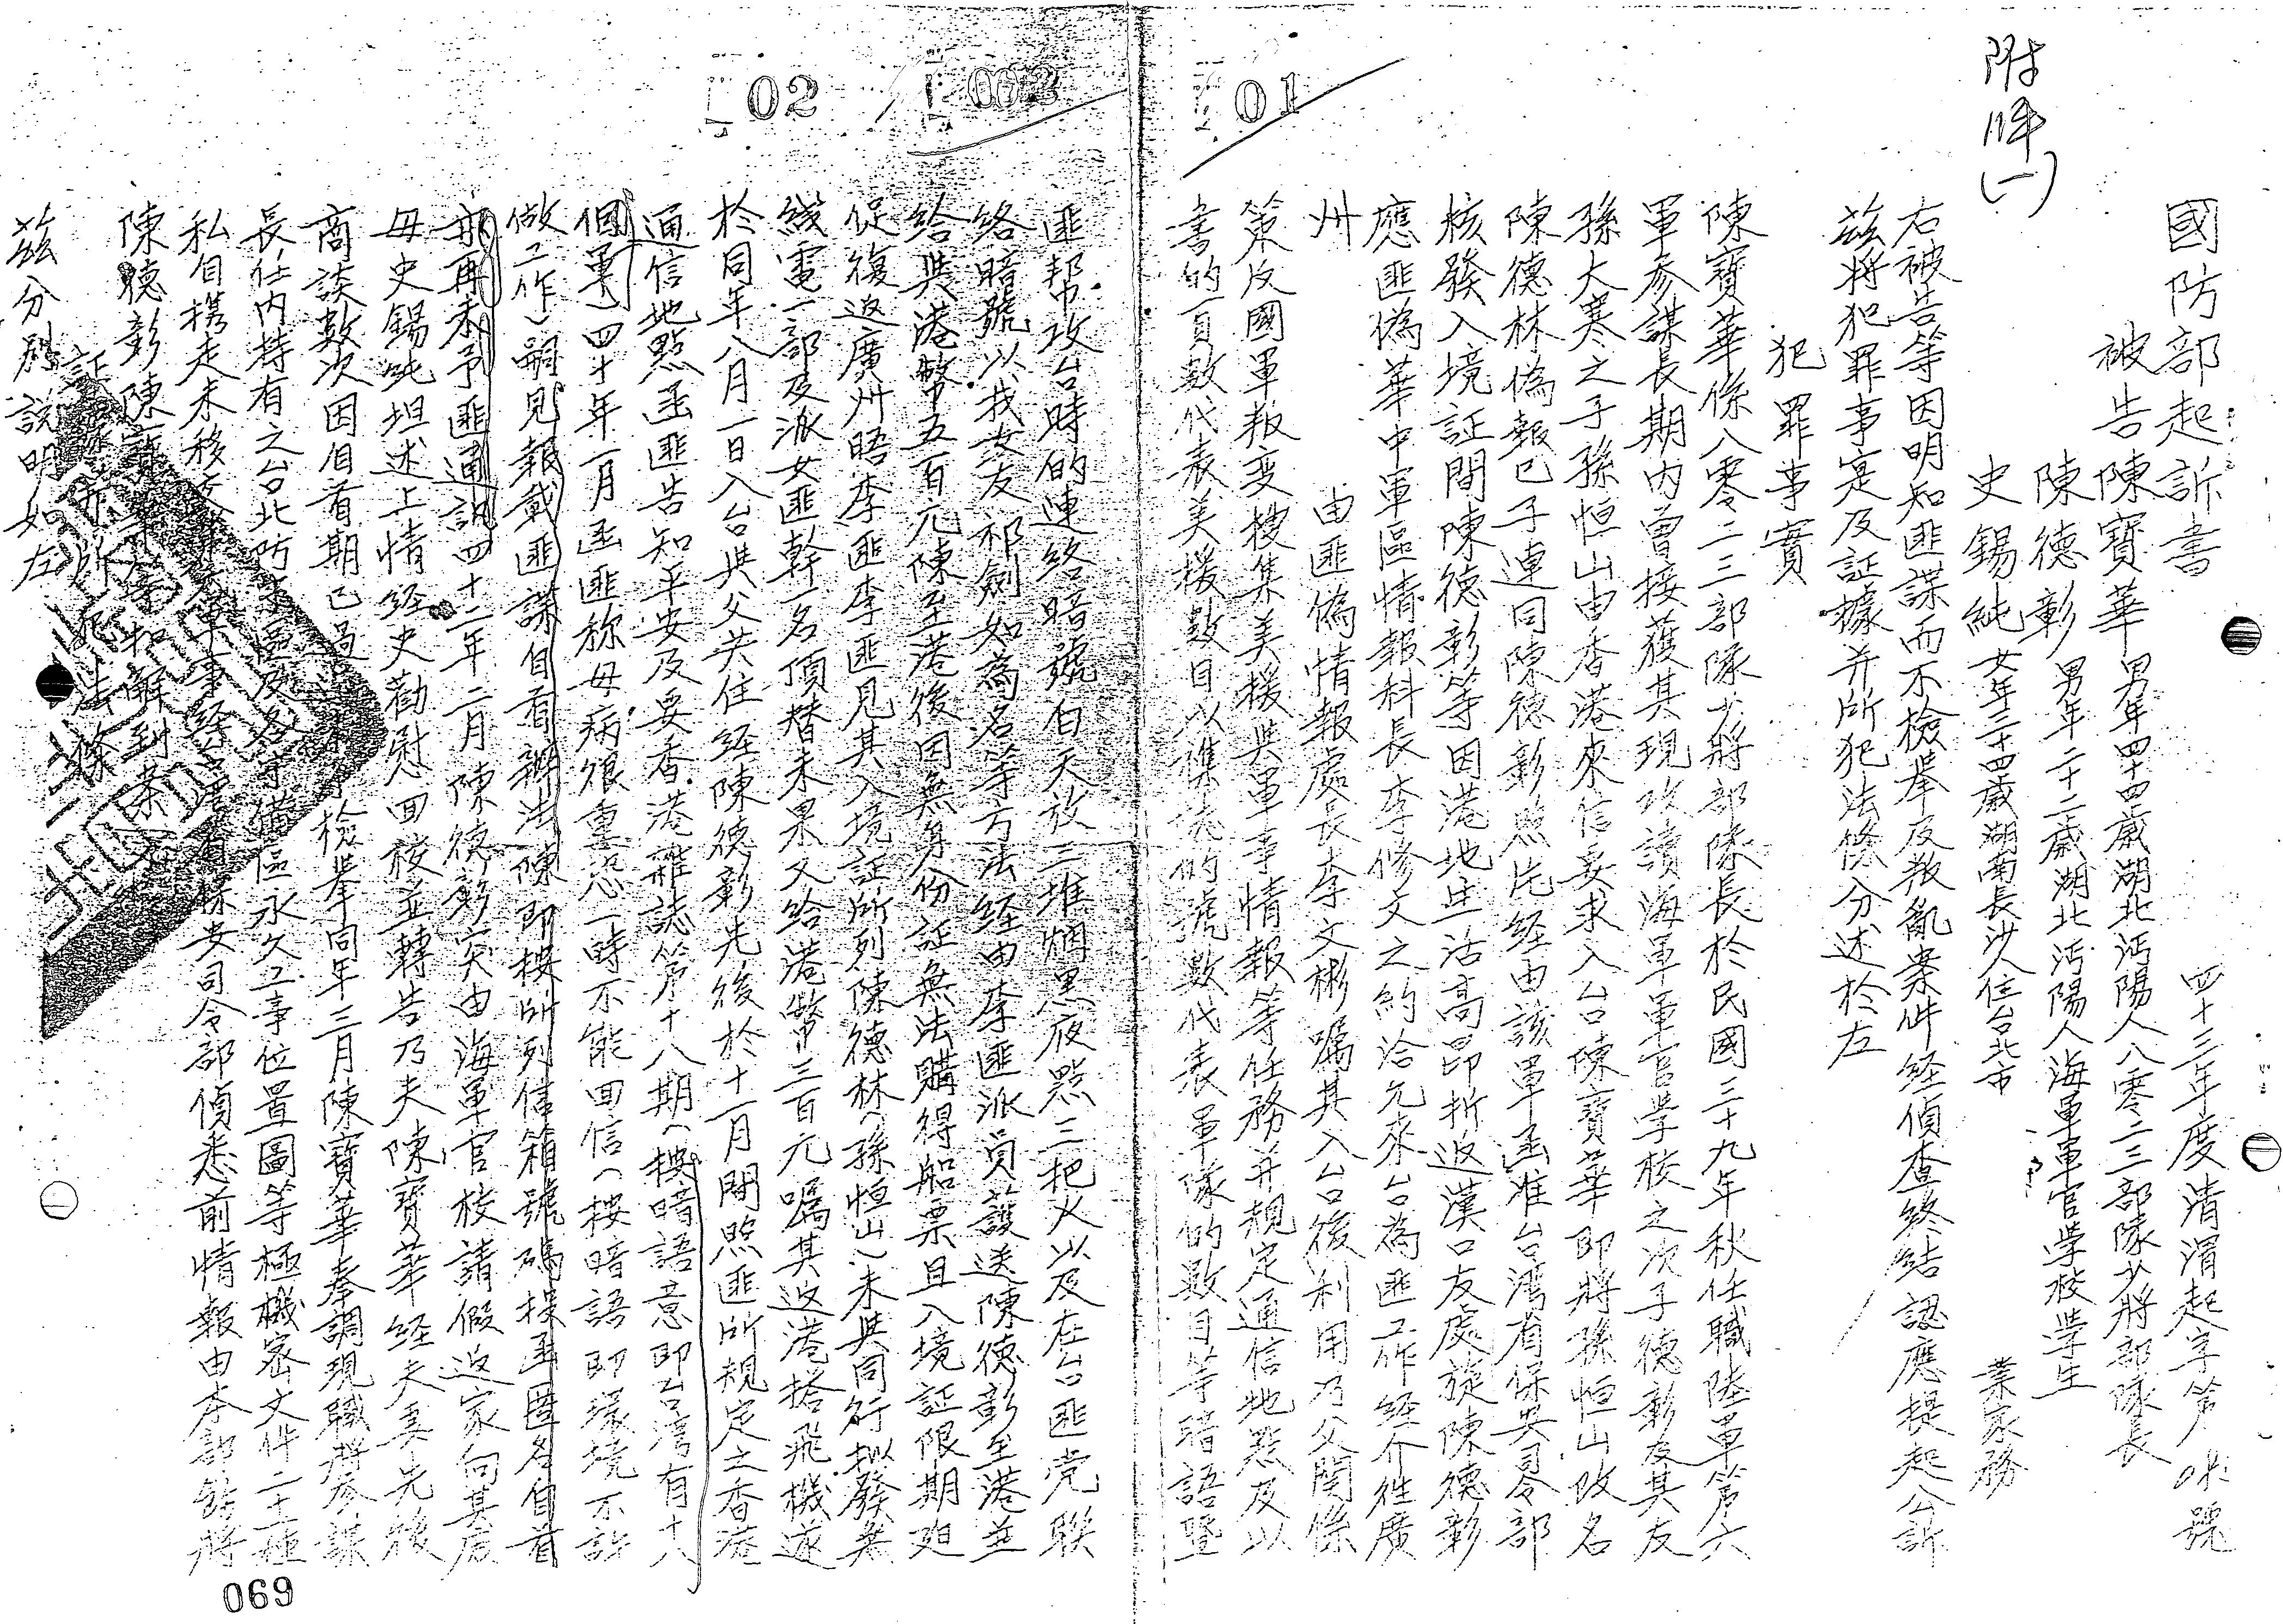 附件(一)
國防部起訴書
四十三年度清渭起字第 號
被告陳寶華 男年四十四歲湖北沔陽人八零二三部隊少將部隊長
陳德彰 男年二十二歲湖北沔陽人海軍軍官学校学生
史錫純 女年三十四歲湖南長沙人住台北市 業家務
右被告等因明知匪諜而不檢举及叛亂案件経偵查終結認應提起公訴
茲将犯罪事実及証據并所犯法條分述於左
犯罪事實
陳寶華係八零二三部隊少將部隊長於民國三十九年秋任職陸軍第六
軍參謀長期內曾接獲其現攻讀海軍軍官学校之次子德彰及其友
孫大寒之子孫恒山由香港來信要求入台陳寶華即將孫恒山改名
陳德林偽報已子連同陳德彰照片経由該軍函准台湾省保安司令部
核發入境証間陳德彰等因港地生活高昂折返漢口友處旋陳德彰
應匪偽華中軍區情報科長李修文之約洽允來台為匪工作経介往廣
州 由匪偽情報處長李文彬囑其入台後利用乃父関係
策反國軍叛变搜集美援與軍事情報等任務并規定通信地點及以
書的頁數代表美援數目以雜誌的號數代表軍隊的數目等暗語暨
匪幇攻台時的連絡暗號白天放三堆烟黑夜點三把火以及在台匪党聯
絡暗號以我女友祁劍如為名等方法経由李匪派員護送陳德彰至港並
給與港幣五百元陳至港後因無身份証無法購得船票且入境証限期廹
促復返廣州晤李匪李匪見其入境証所列陳德林(孫恒山)未與同行擬發無
綫電一部及派女匪幹一名頂替未果又給港幣三百元囑其返港搭飛機遂
於同年八月一日入台與父共住経陳德彰先後於十一月間照匪所規定之香港
通信地點函匪告知平安及要香港雜誌第十八期(按暗語意即台湾有十八
個軍)四十年一月函匪称母病很重恐一時不能回信(按暗語即環境不許
做工作)嗣見報載匪諜自首辦法陳即按所列信箱號碼投函匿名自首
前再未予匪通訊四十二年二月陳德彰突由海軍官校請假返家向其后
母史錫純坦述上情経史勸慰回校並轉告乃夫陳寶華経夫妻先後
商談數次因自首期已過 檢举同年三月陳寶華奉調現職將參謀
長任內持有之台北防守區及各守備區永久工事位置圖等極機密文件二十種
私自携走未移交 事経台湾省保安司令部偵悉前情報由本部飭將
陳德彰陳寶華等扣解到案
証 所犯法條
茲分別說明如左
01
002
02
069